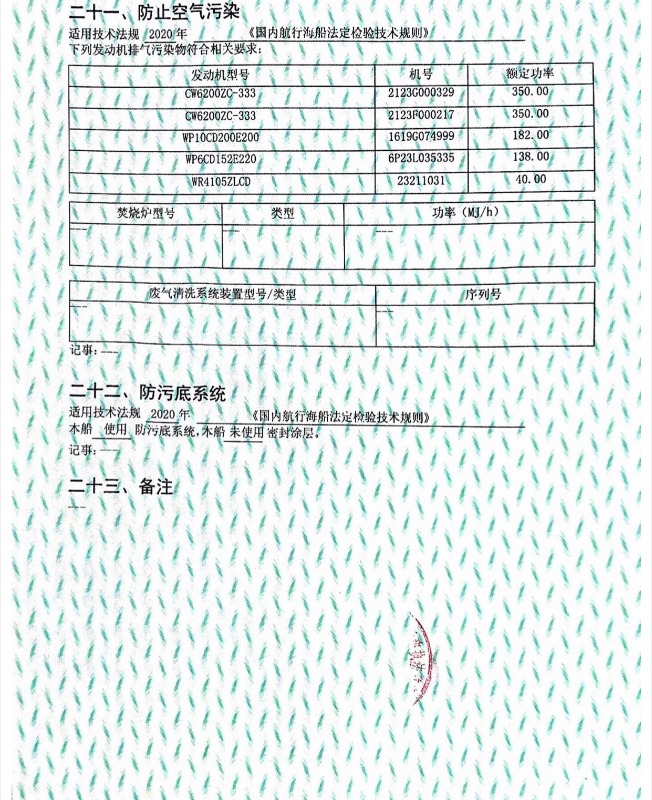 二十一、防止空气污染
适用技术法规 2020 年 《国内航行海船法定检验技术规则》
下列发动机排气污染物符合相关要求:
发动机型号 机号 额定功率
CW6200ZC-333 2123G000329 350.00
CW6200ZC-333 2123F000217 350.00
WP10CD200E200 1619G074999 182.00
WP6CD152E220 6P23L035335 138.00
WR4105ZLCD 23211031 40.00
焚烧炉型号 类型 功率(MJ/h)
--- --- ---
废气清洗系统装置型号/类型 序列号
--- ---
记事:---
二十二、防污底系统
适用技术法规 2020 年 《国内航行海船法定检验技术规则》
本船 使用 防污底系统,本船 未使用 密封涂层。
记事:---
二十三、备注
---